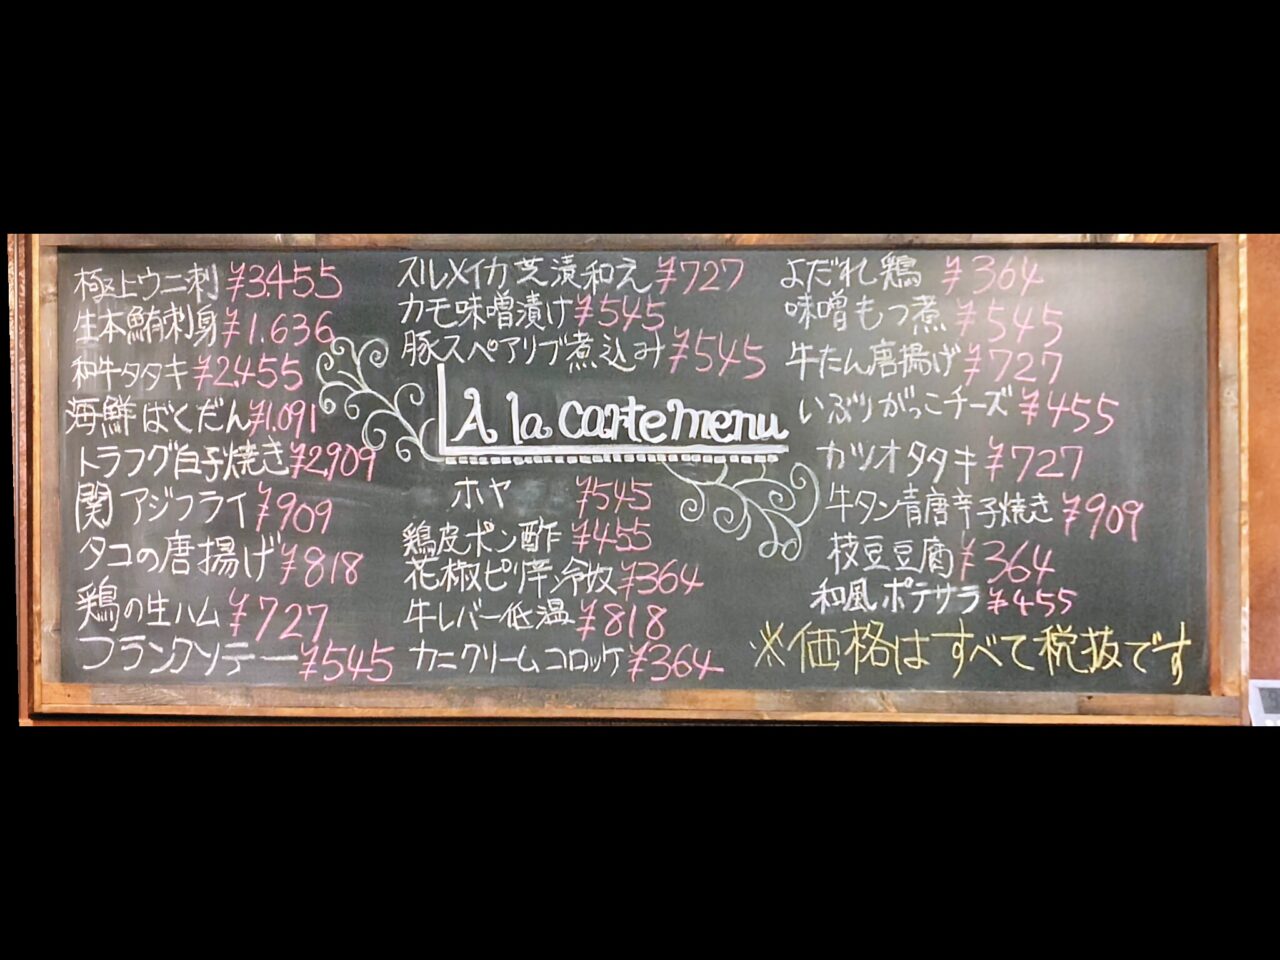 極上ウニ刺 ¥3.455
生本鮪刺身 ¥1.636
和牛タタキ ¥2.455
海鮮ばくだん ¥1.091
トラフグ白子焼き ¥2.909
関アジフライ ¥909
タコの唐揚げ ¥818
鶏の生ハム ¥727
フランクソテー ¥545
スルメイカ芝漬和え ¥727
カモ味噌漬け ¥545
豚スペアリブ煮込み ¥545
A la carte menu
ホヤ ¥545
鶏皮ポン酢 ¥455
花椒ピリ辛冷奴 ¥364
牛レバー低温 ¥818
カニクリームコロッケ ¥364
よだれ鶏 ¥364
味噌もつ煮 ¥545
牛たん唐揚げ ¥727
いぶりがっこチーズ ¥455
カツオタタキ ¥727
牛タン青唐辛子焼き ¥909
枝豆豆腐 ¥364
和風ポテサラ ¥455
※価格はすべて税抜です